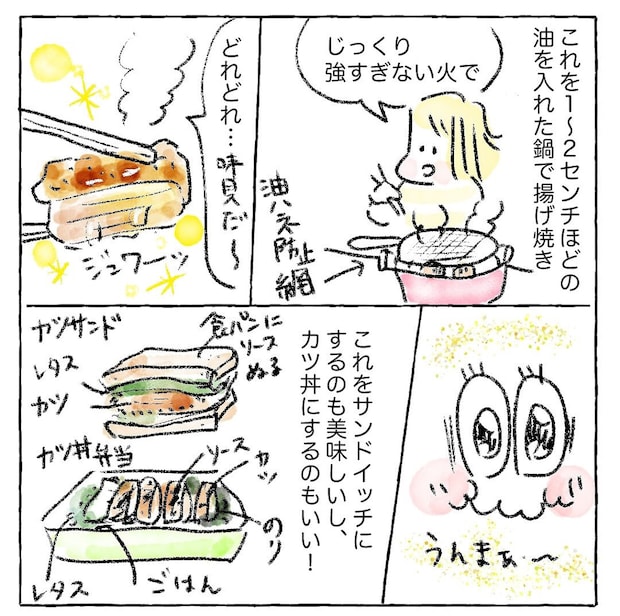 これを1〜2センチほどの
油を入れた鍋で揚げ焼き
じっくり
強すぎない火で
油ハネ防止
網
どれどれ…味見だ〜
ジュワーッ
うんまぁ〜
これをサンドイッチに
するのも美味しいし、
カツ丼にするのもいい！
カツサンド
食パンに
ソース
ぬる
レタス
カツ
カツ丼弁当
ソース
カツ
のり
ごはん
レタス